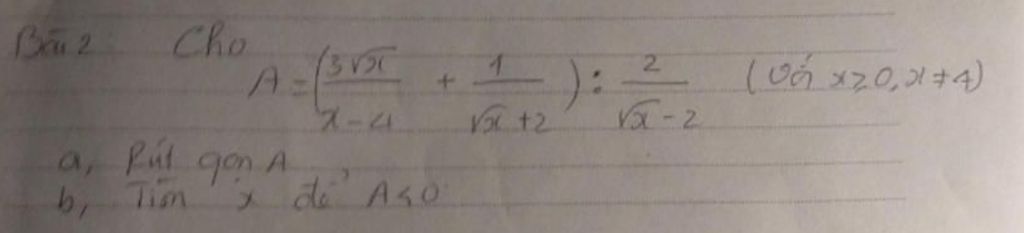 Bài 2 Cho
A = (3√x / x - 4 + 1 / √x + 2) : 2 / √x - 2 (với x ≥ 0, x ≠ 4)
a, Rút gọn A
b, Tìm x để A < 0